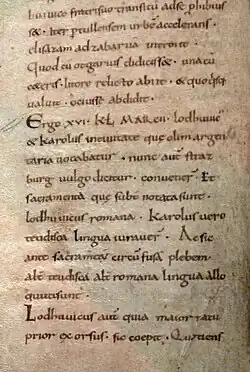 huwicus fraterisuo transitu adse prohibuis
see. Iter ptullensem urbē accelerans.
elisazam adzabarna introiit.
Quod cū otgarius didicisset. unacū
ceteris. litore relicto abiit. & quo quisq
valuit. ocissime abdidit.
Ergo. xvi. KL MARCII. Lodhuuic
& Karolus incivitate que olim argen
taria vocabatur. nunc autē straz
burg vulgo dicitur. convenerīt Et
sacramenta que subt notata sunt.
lodhuuicus romana. Karolus vero
teudisca lingua iuraverī. Ac sic
ante sacramentū circū fusā plebem
alt teudisca alt romana lingua allo
quuti sunt.
Lodhuuicus autē quia maior natu
prior exorsus. sic coepit. Quotiens